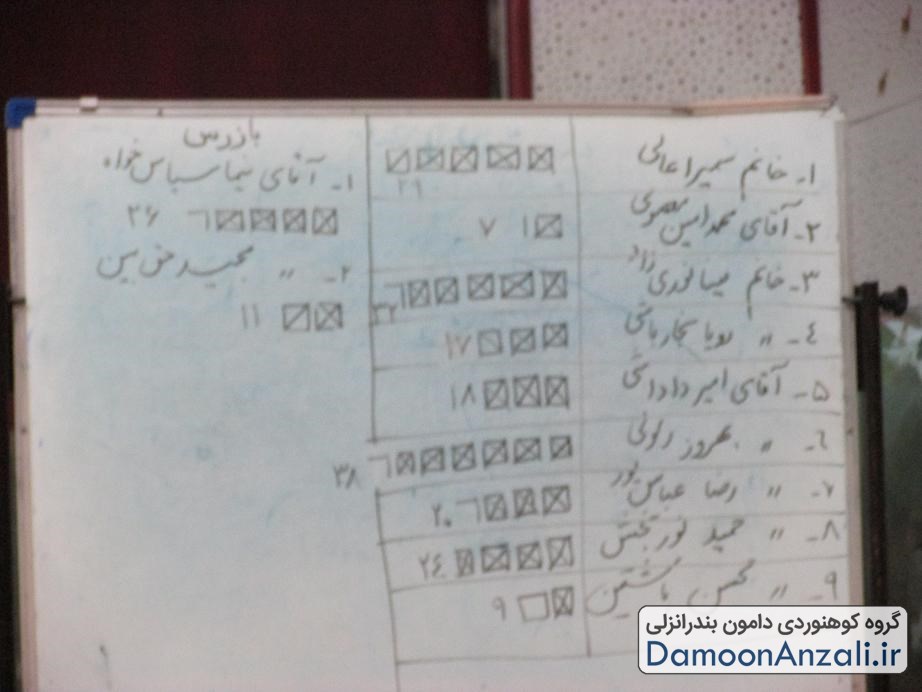 ۱- خانم سمیرا عالی
۲۹
۲- آقای محمدامین معصومی
۷
۳- خانم مینا نوری زاد
۳۲
۴- " رویا
۱۷
۵- آقای امیر داداشی
۱۸
۶- " بهروز رسولی
۳۸
۷- " رضا عباس پور
۲۰
۸- " حمید نوربخش
۲۴
۹- " محسن
۹
بازرس
۱- آقای نیما سپاس خواه
۲۶
۲- " مجید حق بین
۱۱
گروه کوهنوردی دامون بندرانزلی
DamoonAnzali.ir